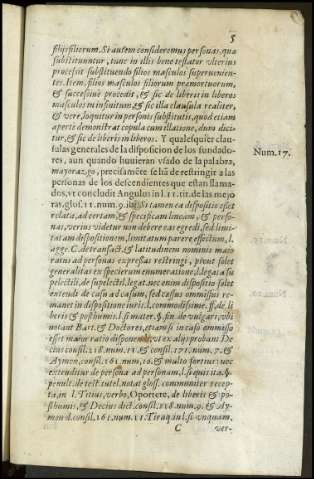 5
filijs filiorum. Si autem consideremus personas, quæ
substituuntur, tunc in illis bene testatur vlterius
procesit substituendo filios masculos superuenien-
tes. Item, filios masculos filiorum præmortuorum,
& successiue procedit, & sic de liberis in liberos
masculos in infinitum, & sic illa clausula realiter,
& vere, loquitur in personis substitutis, quod etiam
aperte demonstrat copula cum illatione, dum dici-
tur, & sic de liberis in liberos. Y qualesquier clau-
sulas generales de la disposicion de los fundado-
res, aun quando huuieran vsado de la palabra,
mayorazgo, precisamēte se hā de restringir a las
personas de los descendientes que estan llama-
dos, vt concludit Angulus in l. 11. tit. de las mejo
ras, glos. 11. num. 9. ibi, Si tamen ea dispositio esset
relata, ad certam, & specificam lineam, & perso-
nas, verius videtur non debere eas egredi, sed limi-
tatam dispositionem, limitatum parere effectum, l.
age. C. de transact. & latitudinem nominis maio-
ratus ad personas expressas restringi, prout solet
generalitas ex specierum enumeratione, l. legata su
pelectili, de supelectile. legat. nec enim dispositio solet
extendi de casu ad casum, sed casus omissus re-
manet in dispositione iuris, l. commodissime, ff. de li
beris & posthumis, l. si mater, §. fin. de vulgari, vbi
notant Bart. & Doctores, etiam si in casu omisso
esset maior ratio disponendi, vt ex alijs probant De
cius consil. 218. num. 11. & consil. 171. num. 7. &
Aymon, consil. 161. num. 10. & multo fortius: nec
extenditur de persona ad personam, l. si quis ita, §.
penult. de testa. tutel. notat gloss. communiter recep-
ta, in l. Titius, verbo, Oportere, de liberis & po-
sthumis, & Decius dict. consil. 218. num. 9. & Ay-
mon d. consil. 161. num. 11. Tiraq. in l. si vnquam,
C ver-
Num. 17.